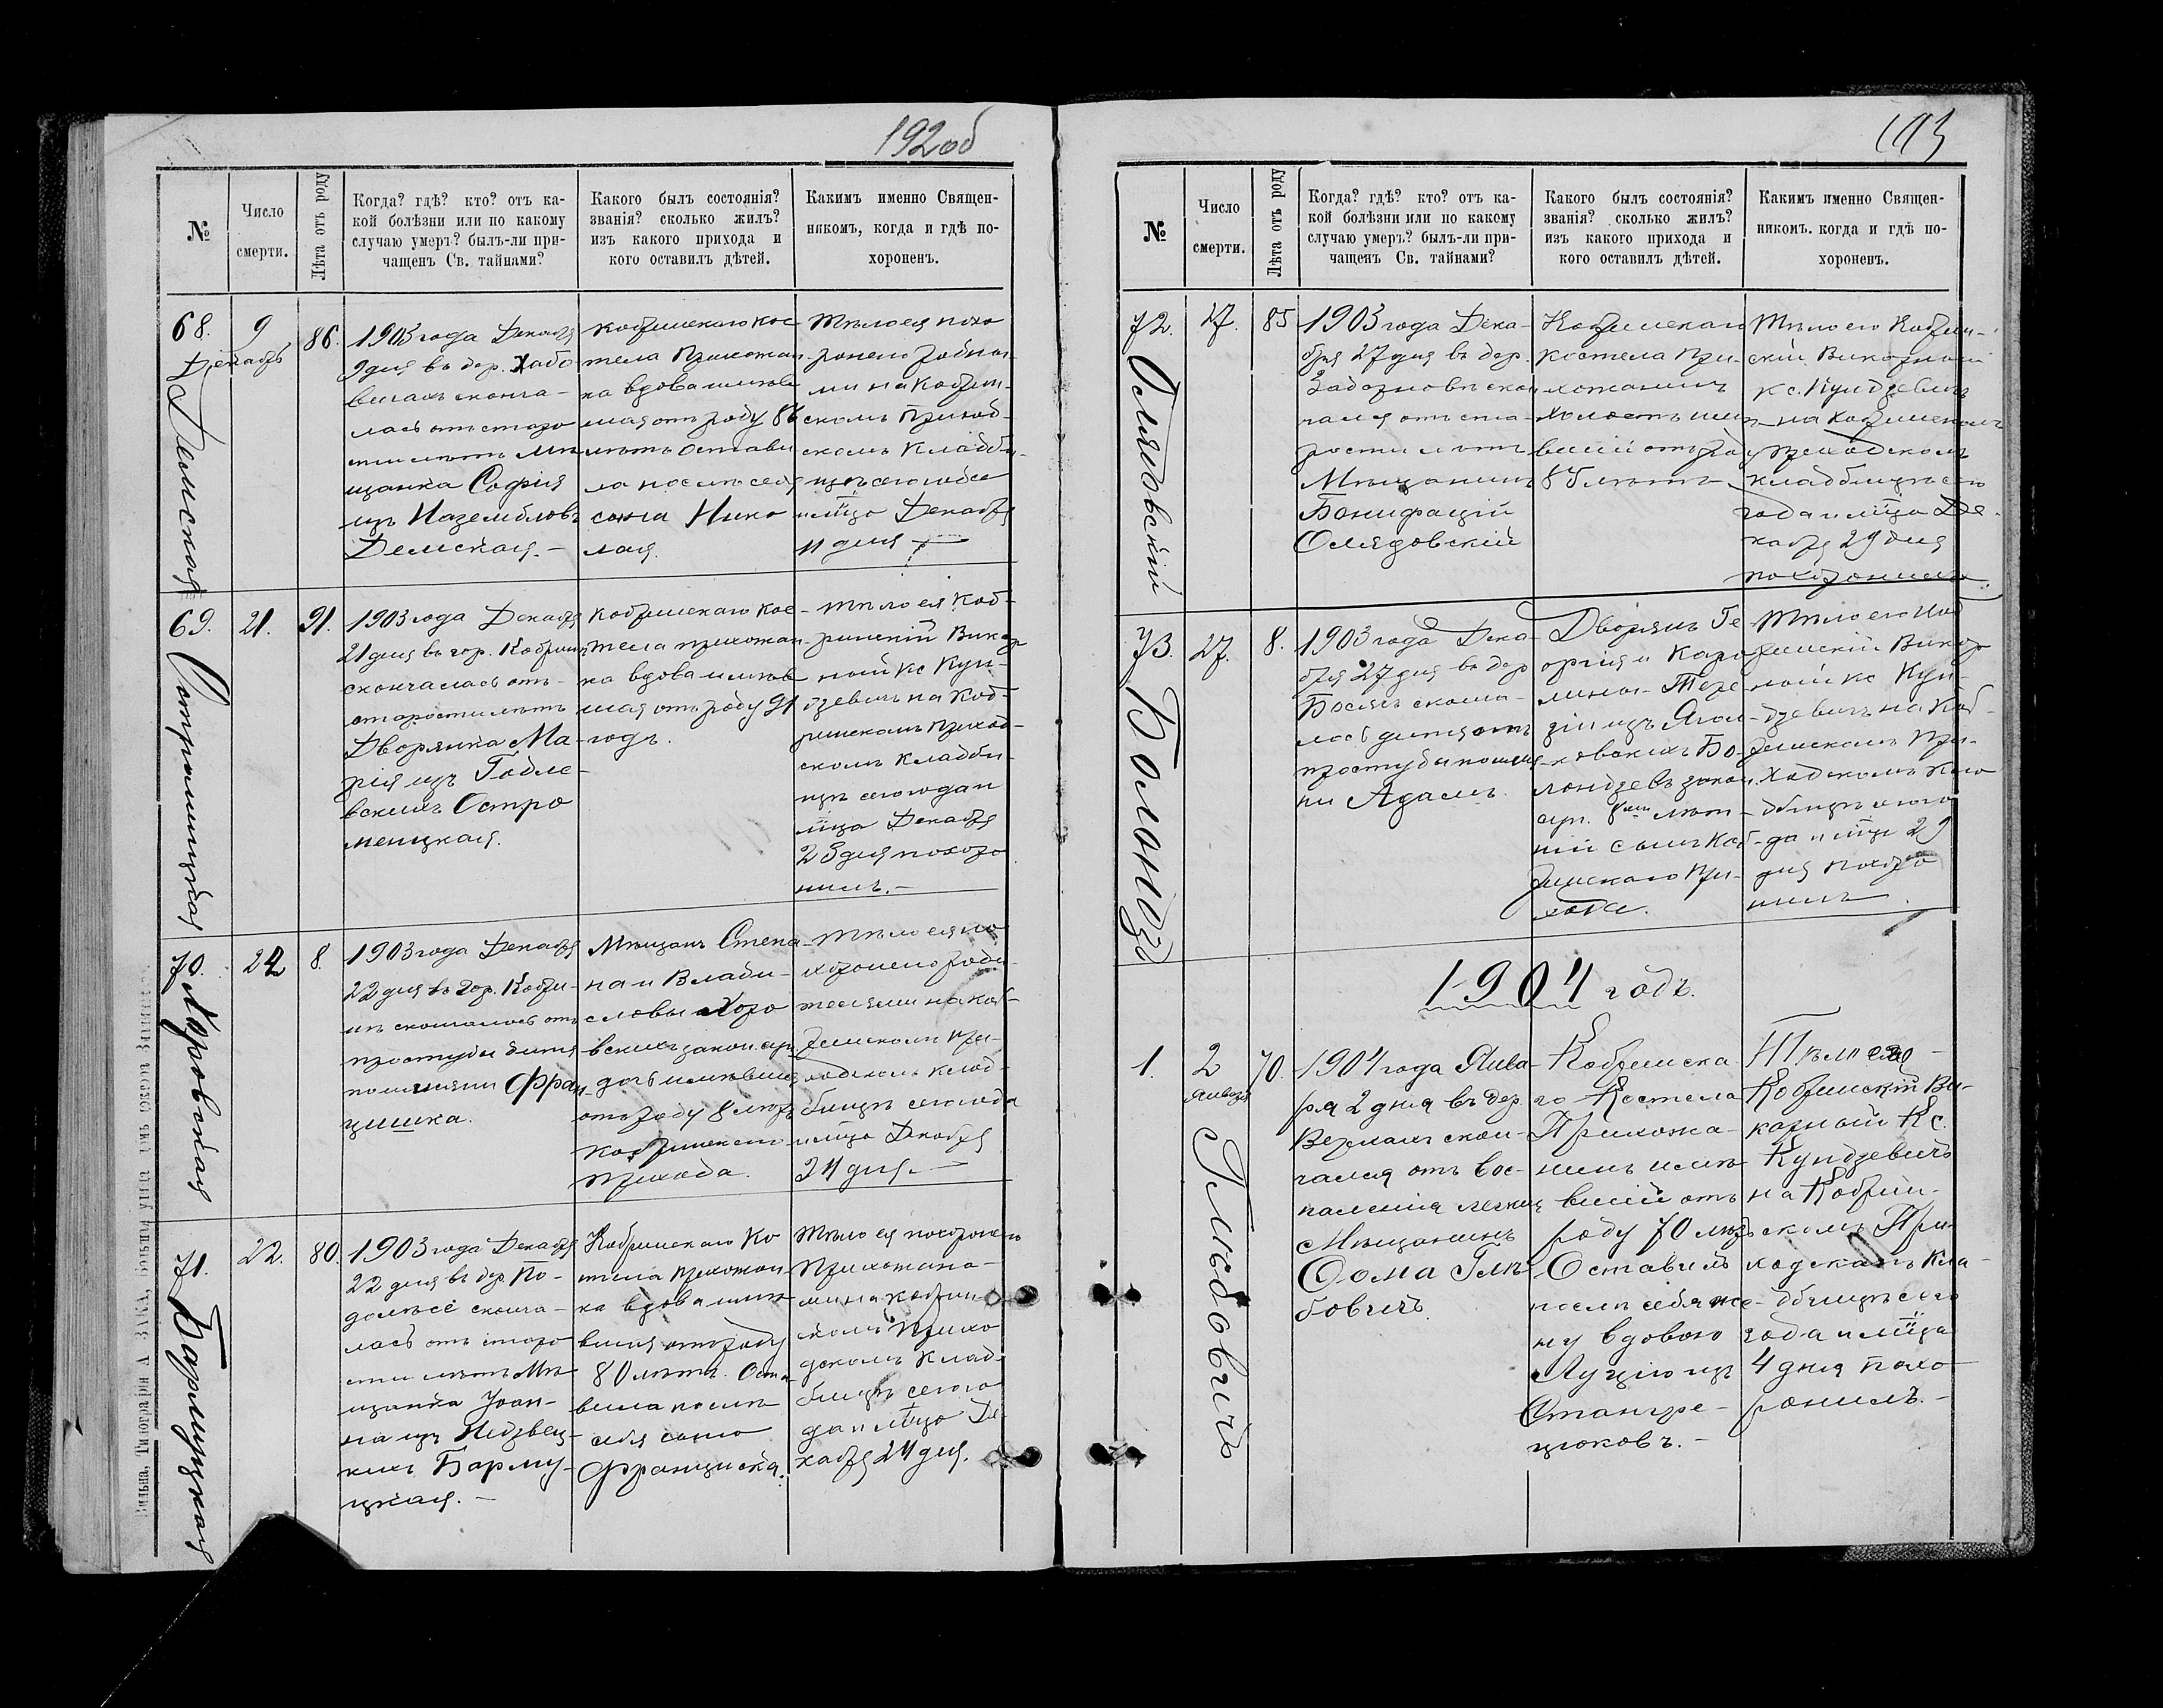 192об
№
Число
смерти.
Лѣта отъ роду
Когда? гдѣ? кто? отъ ка-
кой болѣзни или по какому
случаю умеръ? былъ-ли при-
чащенъ Св. тайнами?
Какого былъ состоянія?
званія? сколько жилъ?
изъ какого прихода и
кого оставилъ дѣтей.
Какимъ именно Священ-
никомъ, когда и гдѣ по-
хороненъ.
68.
Демская
9
Декабрь
86.
1903 года Декабря
9 дня въ дер. Хабо
вичахъ сконча-
лась отъ старо
сти лѣтъ Мѣ
щанка Софія
изъ
Демская.-
Кобринскаго Кос
тела Прихожан
ка вдова имѣв
шая отъ роду 86
лѣтъ Остави
ла послѣ себя
сына Нико
лая.
Тѣло ея похо
ронено родны
ми на Кобрин-
скомъ Приход-
скомъ Кладби-
щѣ сего года
и мѣца Декабря
11 дня
69.
Остромецкая
21.
91.
1903 года Декабря
21 дня въ гор. Кобринѣ
скончалась отъ
старости лѣтъ
Дворянка Ма-
рія изъ Гобле-
вскихъ Остро
мецкая.
Кобринскаго Кос-
тела прихожан-
ка вдова имѣв
шая отъ роду 91
годъ.
Тѣло ея Коб-
ринскій Викар
ный Кс Кун-
дзевичъ на Коб-
ринскомъ приход-
скомъ Кладби-
щѣ сего года и
мѣца Декабря
23 дня похоро
нилъ.-
70.
22
8.
1903 года Декабря
22 дня въ гор. Кобри-
нѣ скончалось отъ
простуды дитя
по имени Фран
цишка.
Мѣщанъ Степа
на и Влади-
славы
вскихъ закон. супр.
дочь имѣвшая
отъ роду 8 лѣтъ
Кобринскаго
прихода.
Тѣло ея по
хоронено роди-
телями на Коб-
ринскомъ При-
ходскомъ Клад-
бищѣ сего года
и мѣца Декабря
24 дня.-
71.
Бармуцкая
22.
80.
1903 года Декабря
22 дня въ дер По-
долѣсіе сконча-
лась отъ старо
сти лѣтъ Мѣ
щанка Іоан-
на изъ
Барму-
цкая.-
Кобринскаго Ко
стела прихожан
ка вдова имѣ
вшая отъ роду
80 лѣтъ. Оста
вила послѣ
себя сына
Франциска.
Тѣло ея похоронено
Прихожана-
ми на Кобрин-
скомъ Прихо
дскомъ Клад-
бищѣ сего го
да и мѣца Де
кабря 24 дня.
193
№
Число
смерти.
Лѣта отъ роду
Когда? гдѣ? кто? отъ ка-
кой болѣзни или по какому
случаю умеръ? былъ-ли при-
чащенъ Св. тайнами?
Какого былъ состоянія?
званія? сколько жилъ?
изъ какого прихода и
кого оставилъ дѣтей.
Какимъ именно Священ-
никомъ, когда и гдѣ по-
хороненъ.
72.
Омядовскій
27.
85
1903 года Дека-
бря 27 дня въ дер.
скон
чался отъ ста-
рости лѣтъ
Мѣщанинъ
Бонифацій
Омядовскій
Кобринскаго
костела При-
хожанинъ
холостъ имѣ
вшій отъ роду
85 лѣтъ
Тѣло его Кобрин-
скій Викарный
Кс. Кундзевичъ
на Кобринскомъ
приходскомъ
кладбищѣ сего
года и мѣца Де-
кабря 29 дня
похоронилъ.
73.
Болондзь
27.
8.
1903 года Дека-
бря 27 дня въ дер
сконча-
лось дитя отъ
простуды по име
ни Адамъ.
Дворянъ Ге
оргія и Каро
лины - Тере
зіи изъ
Бо-
лондзевъ закон.
супр. 8ми лѣт-
ній сынъ Коб-
ринскаго При-
хода.
Тѣло его Коб
ринскій Викар
ный кс Кун-
дзевичъ на Коб-
ринскомъ При-
ходскомъ Кла
дбищѣ сего го
да и мѣца 29
дня похоро
нилъ.
1904 годъ.
1.
Глѣбовичъ
2
Января
70.
1904 года Янва-
ря 2 дня въ дер
скон-
чался отъ вос-
паленія легкихъ
Мѣщанинъ
Ѳома Глѣ-
бовичъ.
Кобринска-
го Костела
Прихожа-
нинъ имѣ-
вшій отъ
роду 70 лѣтъ
Оставилъ
послѣ себя же-
ну вдовою
Луцію изъ
Стангре-
цюковъ.-
Тѣло его
Кобринскій Ви-
карный Кс.
Кундзевичъ
на Кобрин-
скомъ При-
ходскомъ Кла-
дбищѣ сего
года и мѣца
4 дня похо-
ронилъ.-